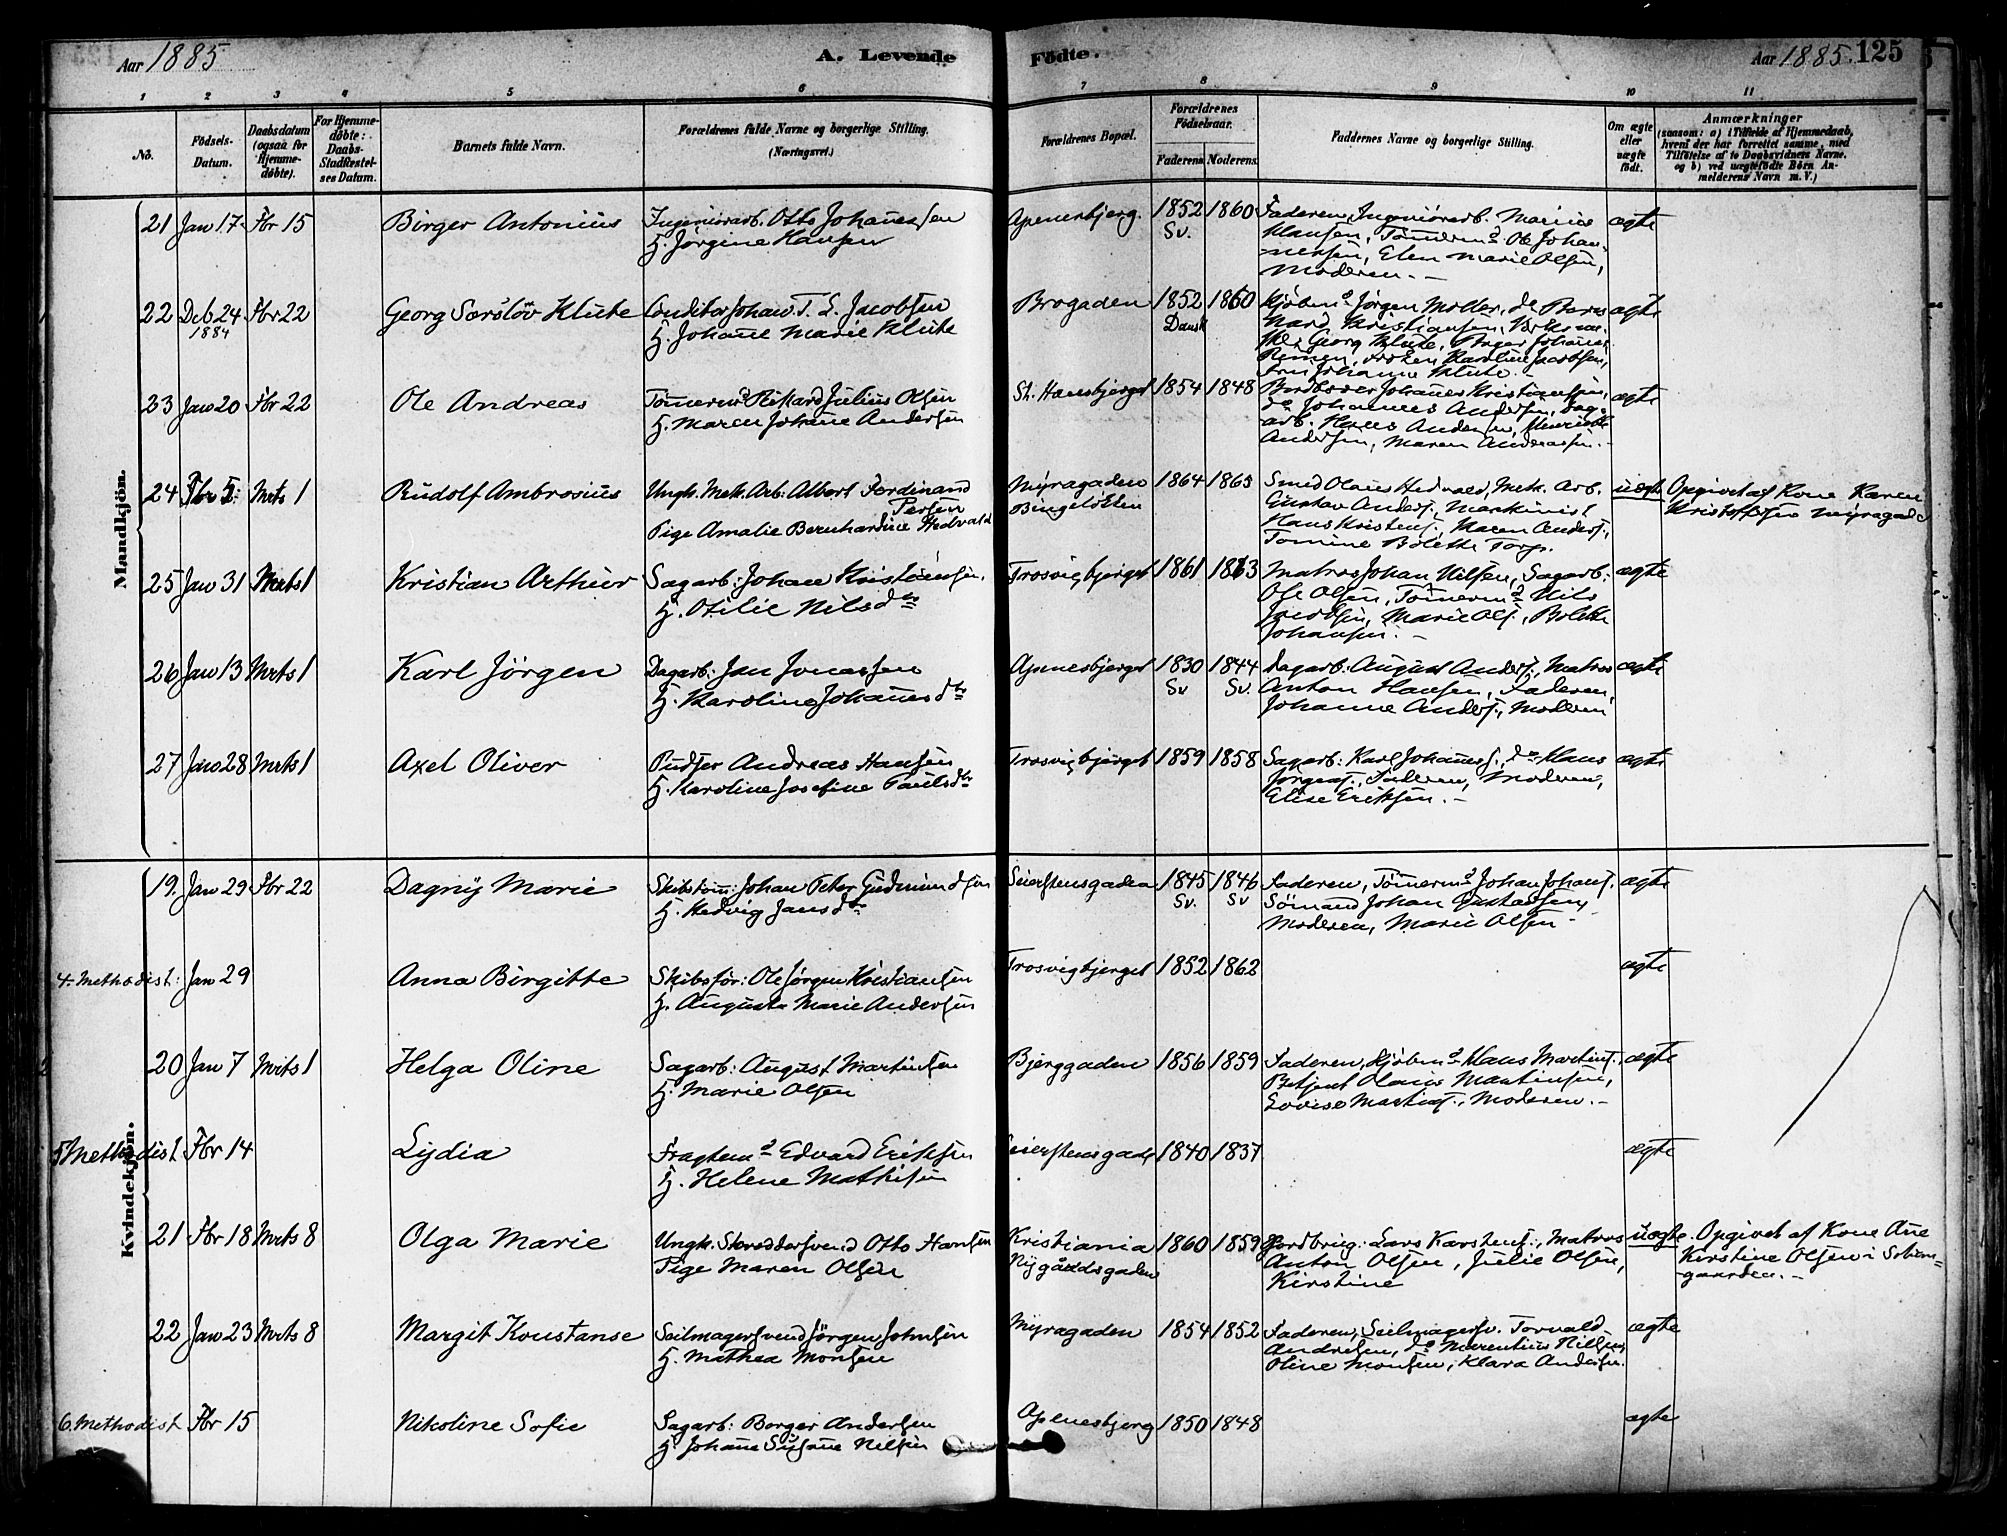 Aar 1885
A. Levende
Fødte.
Aar 1885. 125
1 2 3 4 5 6 7 8 9 10 11
No.
Fødsels-
Datum.
Daabsdatum
(ogsaa for
Hjemme-
døbte).
For Hjemme-
døbte:
Daabs-
Stadfæstel-
ses Datum.
Barnets fulde Navn.
Forældrenes fulde Navne og borgerlige Stilling.
(Næringsvei.)
Forældrenes Bopæl.
Forældrenes
Fødselsaar.
Faderens. Moderens.
Faddernes Navne og borgerlige Stilling.
Om ægte
eller
uægte
født.
Anmærkninger
(saasom: a) i Tilfælde af Hjemmedaab,
hvem der har forrettet samme, med
Tilføielse af to Daabsvidners Navne.
og b) ved uægtefødte Børn An-
melderens Navn m. V.)
Mandkjøn.
21 Jan 17 Fbr 15 Birger Antonius Ingeniørarb. Otto Johannessen Apenesbjerg. 1852 1860 Faderen, Ingeniørarb. Marius ægte
H. Jørgine Hansen Sv. Klausen, Tømmerm. Ole Johan-
nessen, Elen Marie Olsen,
Moderen. –
22 Deb 24 Fbr 22 Georg Sørsløv Klute Conditor Johan T. L. Jacobsen Brogaden 1852 1860 Kjøbm. Jørgen Møller, do ægte
1884 H. Johanne Marie Klute Dansk Kristiansen,
Georg Klute, Bager Johannes
Frøken Karoline Jacobsen,
Fru Johanne Klute. –
23 Jan 20 Fbr 22 Ole Andreas Tømmerm. Rikard Julius Olsen St. Hansbjerget 1854 1848 Johannes Kristiansen, ægte
H. Maren Johanne Andersen do Johannes Andersen, Sag-
arb. Andersen,
Andersen, Maren Andreassen. –
24 Fbr 5. Mrts 1 Rudolf Ambrosius Ungk. Mek. Arb: Albert Ferdinand Myragaden 1864 1865 Smed Olaus Hedvald, Mek. Arb. uægte Opgivet af Kone Karen
Bingeløkken Gustav Anders., Maskinist Kristoffersen Myragade
Pige Amalie Bernhardine Hedvald Hans Kristens., Maren Anders.,
Tomine Bolette Torgs.
25 Jan 31 Mrts 1 Kristian Arthur Sagarb: Johan Kristiansen. Trosvigbjerget 1861 1863 Matros Johan Nilsen, Sagarb: ægte
H. Otilie Nilsdtr Ole Olsen, Tømmerm. Nils
Jacobsen, Marie Ols., Bolette
Johansen. –
26 Jan 13 Mrts 1 Karl Jørgen Dagarb: Jan Jonassen Apenesbjerget 1830 1844 Dagarb: August Anders., Matros ægte
H. Karoline Johannesdtr Sv Sv. Anton Hansen, Faderen,
Johanne Anders., Moderen
27 Jan 28 Mrts 1 Axel Oliver Pudser Andreas Hansen Trosvigbjerget 1859 1858 Sagarb: Karl Johannes., do Klaus ægte
H. Karoline Josefine Paulsdtr Jørgens., Faderen, Moderen,
Elise Eriksen. –
Kvindekjøn.
19. Jan 29 Fbr 22 Dagny Marie Skibstøm: Johan Peter Gudmundsen Seierstensgaden 1845 1846 Faderen, Tømmerm. Johan Johans. ægte
H. Hedvig Jansdtr Sv. Sv Sømand Johan Gustavsen,
Moderen, Marie Olsen –
4. Methodist. Jan 29 Anna Birgitte Skibsfør: Ole Jørgen Kristiansen Trosvigbjerget 1852 1862 ægte
H. Augusta Marie Andersen
20 Jan 7 Mrts 1 Helga Oline Sagarb: August Martinsen Bjerggaden 1856 1859 Faderen, Kjøbm. Klaus Martins., ægte
H. Marie Olsen Betjent Olaus Martinsen,
Lovise Martins., Moderen. –
5 Methodist Fbr 14 Lydia Fragtem. Edvard Eriksen Seierstensgade 1840 1837 ægte
H. Helene Mathisen
21 Fbr 18 Mrts 8 Olga Marie Ungk. Skræddersvend Otto Hansen Kristiania 1860 1859 Lars Karstens., Matros uægte. Opgivet af Kone Ane
Pige Maren Olsen Nygaardsgaden Anton Olsen, Julie Olsen, Kirstine Olsen i
Kirstine gaarden. –
22 Jan 23 Mrts 8 Margit Konstanse Seilmagersvend Jørgen Johnsen Myragaden 1854 1852 Faderen, Seilmagersv. Torvald ægte
H. Mathea Monsen Andresen, do Marentius Nilsen
Oline Monsen, Klara Andersen.
6. Methodist Fbr 15 Nikoline Sofie Sagarb: Borger Andersen Apenesbjerg 1850 1848 ægte
H. Johanne Susanne Nilsen